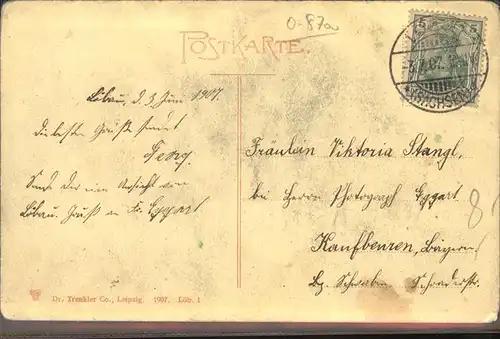 0-87a
POSTKARTE
5 5
(SACHSEN)
Löbau, d. 3. Juni 1907.
die besten Grüße sendet
Georg.
Sende dir eine Ansicht von
Löbau. Gruß an Fr. Eggart
Fräulein Viktoria Stangl,
bei Herrn Photograph Eggart
Kaufbeuren, Bayern
Bz. Schwaben
8
Dr. Trenkler Co., Leipzig. 1907. Löb. 1